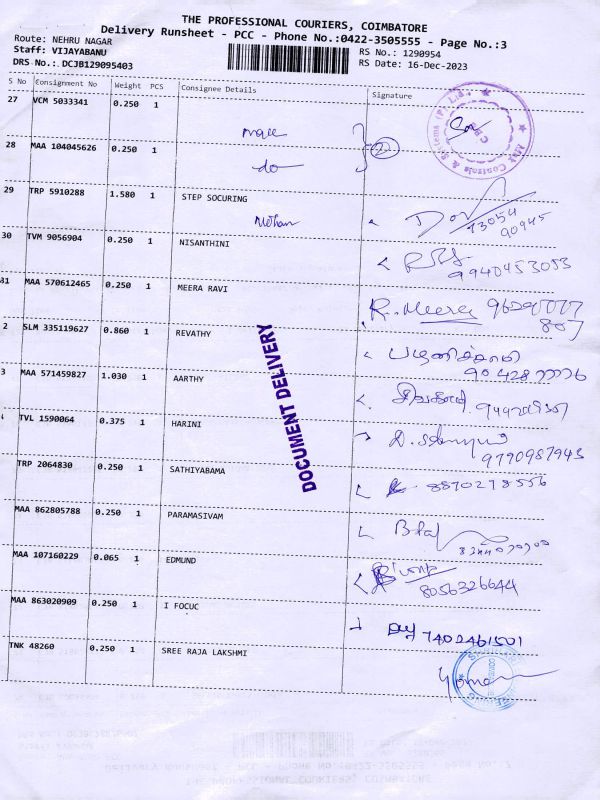 THE PROFESSIONAL COURIERS, COIMBATORE
Delivery Runsheet - PCC - Phone No.:0422-3505555 - Page No.:3
Route: NEHRU NAGAR
Staff: VIJAYABANU
DRS No.: DCJB129095403
RS No.: 1290954
RS Date: 16-Dec-2023
S No Consignment No Weight PCS Consignee Details Signature
27 VCM 5033341 0.250 1
28 MAA 104045626 0.250 1
do
2
29 TRP 5910288 1.580 1 STEP SOCURING
73054
90945
30 TVM 9056904 0.250 1 NISANTHINI
9940453053
31 MAA 570612465 0.250 1 MEERA RAVI
R. Meera
807
2 SLM 335119627 0.860 1 REVATHY
3 MAA 571459827 1.030 1 AARTHY
TVL 1590064 0.375 1 HARINI
9790987943
TRP 2064830 0.250 1 SATHIYABAMA
8870278556
MAA 862805788 0.250 1 PARAMASIVAM
MAA 107160229 0.065 1 EDMUND
8056326644
MAA 863020909 0.250 1 I FOCUC
7402461501
TNK 48260 0.250 1 SREE RAJA LAKSHMI
DOCUMENT DELIVERY